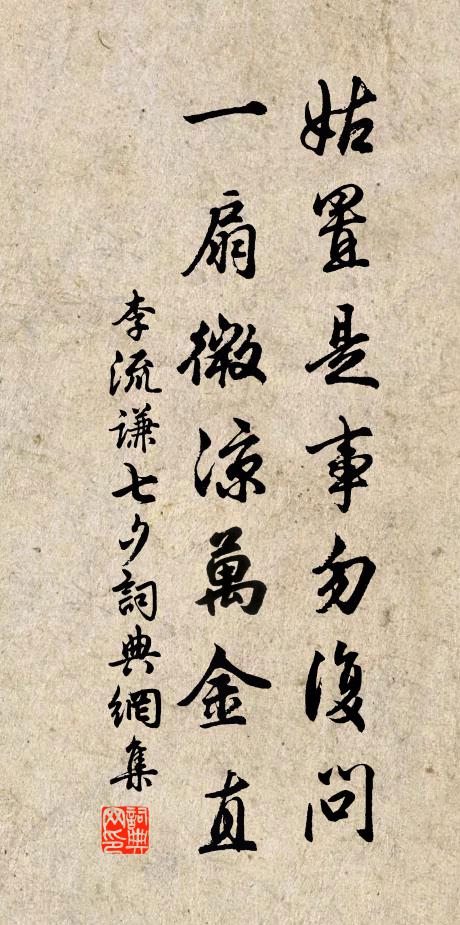 姑置是事勿復問
一扇微涼萬金直
李流謙七夕詞典網集
詞典網印